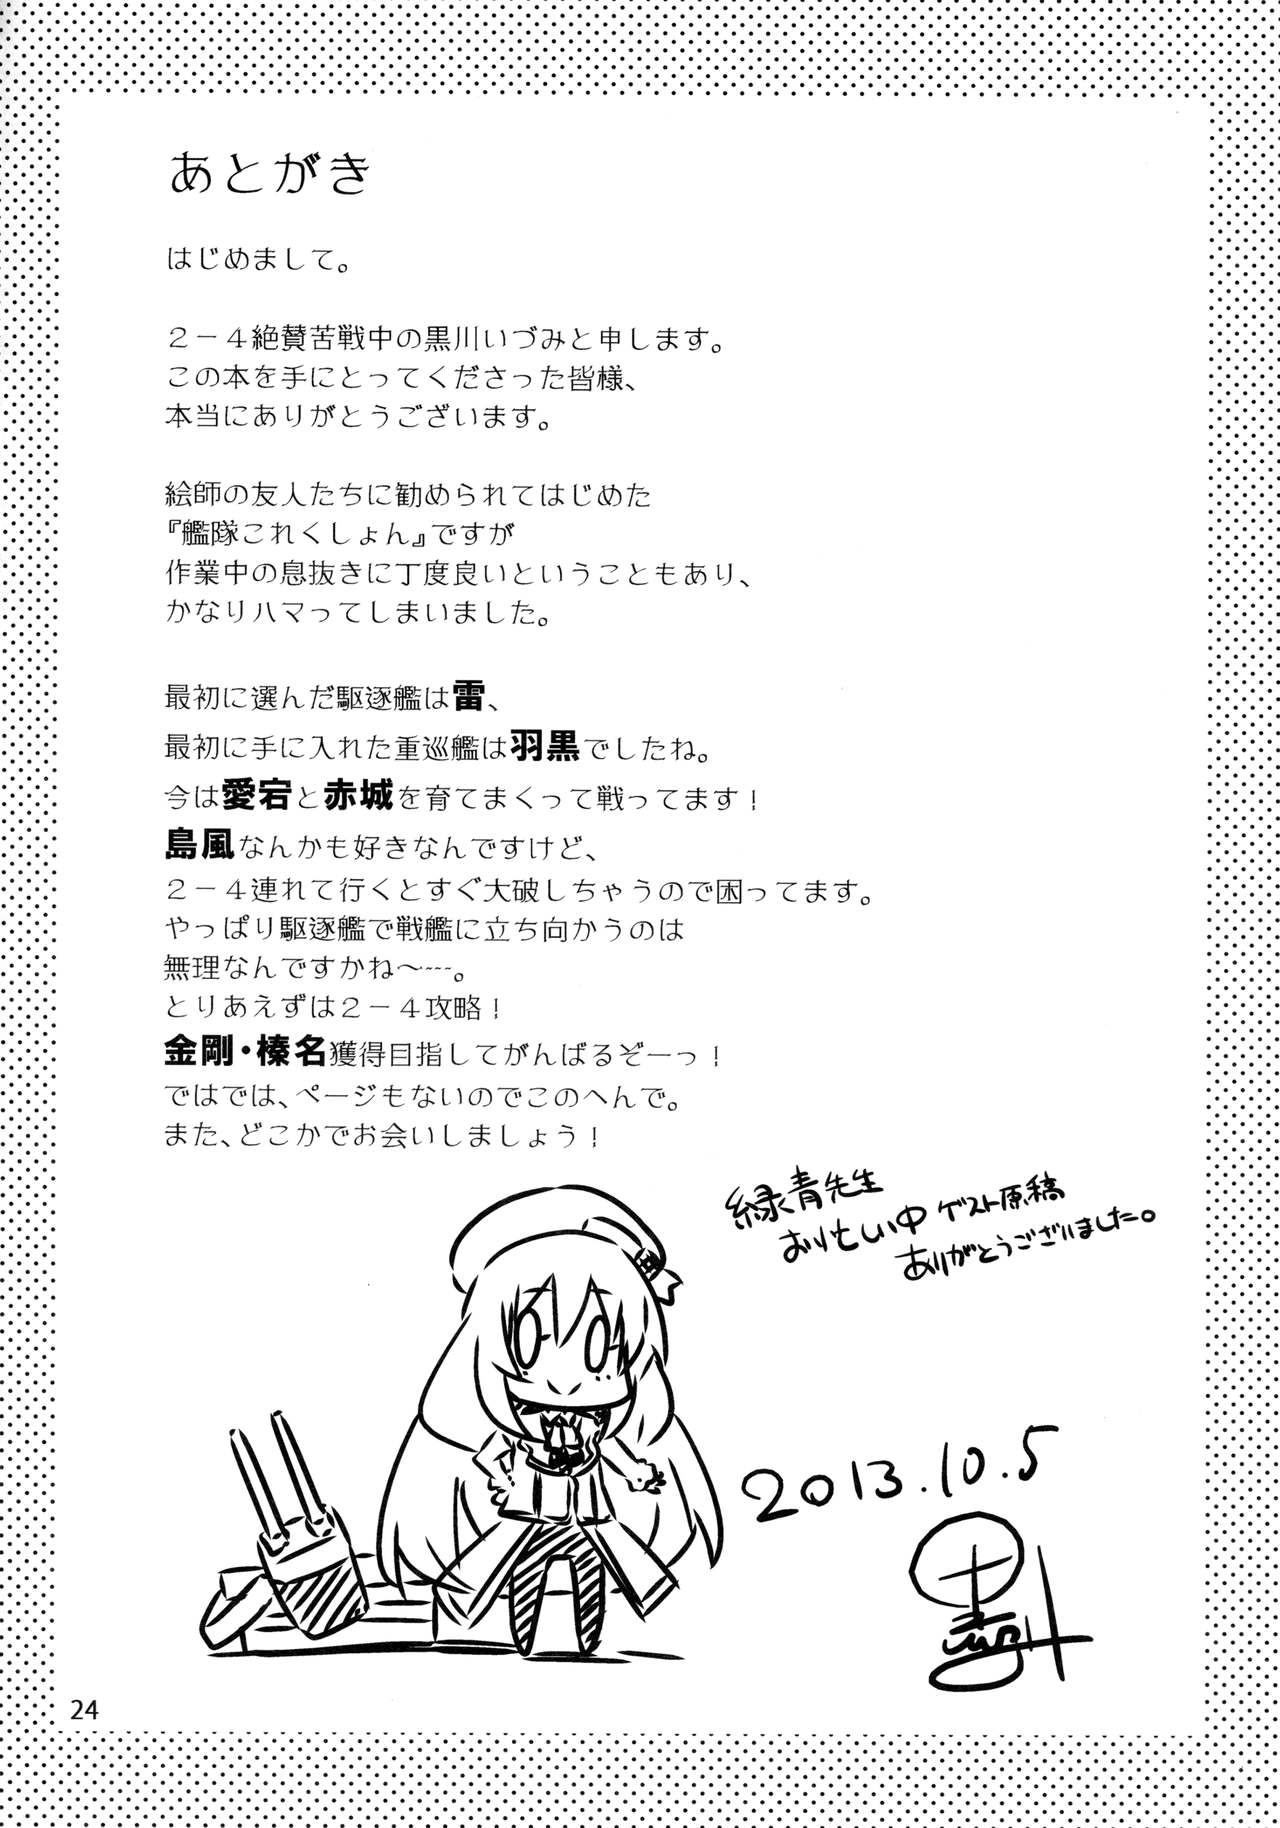 あとがき
はじめまして。
２－４絶賛苦戦中の黒川いづみと申します。
この本を手にとってくださった皆様、
本当にありがとうございます。
絵師の友人たちに勧められてはじめた
『艦隊これくしょん』ですが
作業中の息抜きに丁度良いということもあり、
かなりハマってしまいました。
最初に選んだ駆逐艦は雷、
最初に手に入れた重巡艦は羽黒でしたね。
今は愛宕と赤城を育てまくって戦ってます！
島風なんかも好きなんですけど、
２－４連れて行くとすぐ大破しちゃうので困ってます。
やっぱり駆逐艦で戦艦に立ち向かうのは
無理なんですかね～…。
とりあえずは２－４攻略！
金剛・榛名獲得目指してがんばるぞーっ！
ではでは、ページもないのでこのへんで。
また、どこかでお会いしましょう！
緑青先生
お忙しい中ゲスト原稿
ありがとうございました。
2013.10.5
24